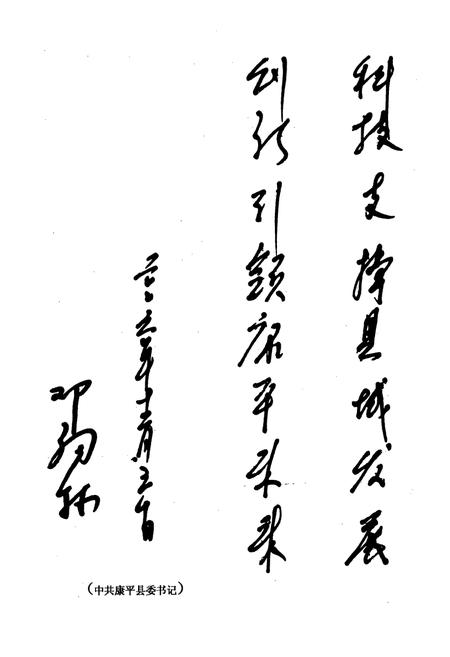 科技支撑县域发展
创新引领康平未来
二〇〇六年十二月五日
（中共康平县委书记）